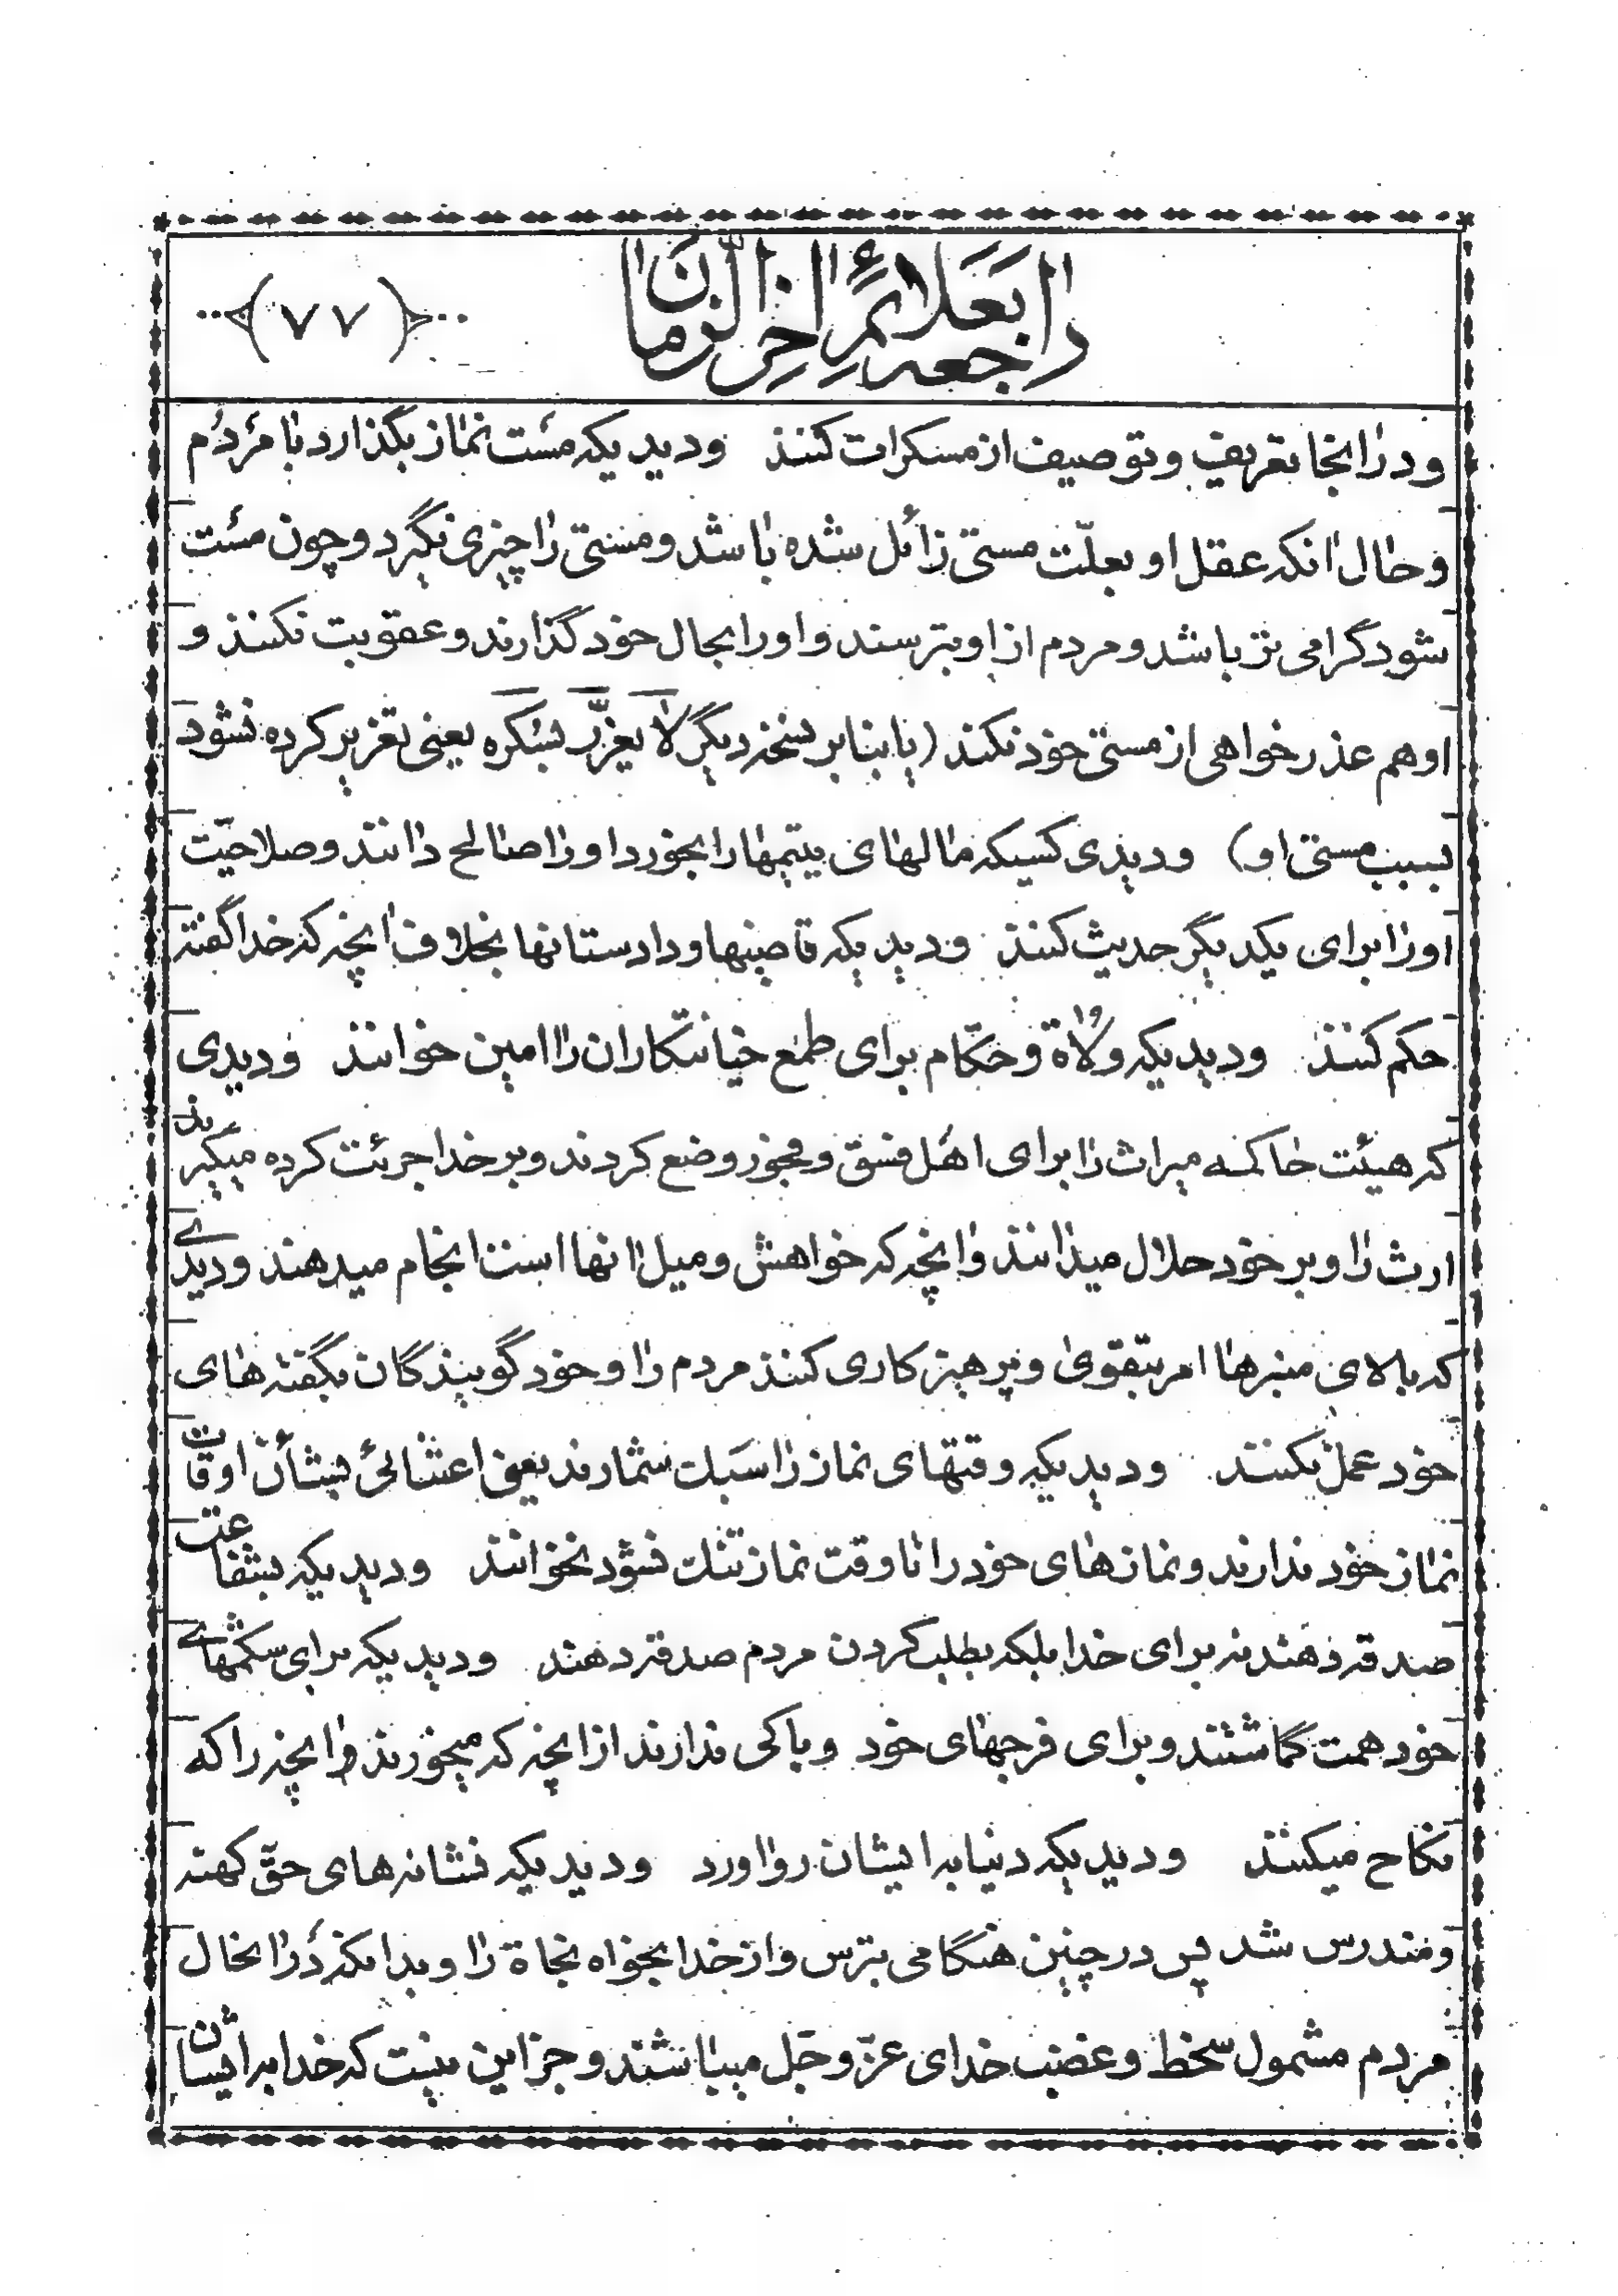 راجعه بعلائم اخر الزمان
(۷۷)
و در انجا تعریف و توصیف از مسکرات کنند و دیدیکه مست نماز بگذارد با مردم
و حال انکه عقل او بعلّت مستی زائل شده باشد و مستی را چیزی نگیرد و چون مست
شود گرامی تر باشد و مردم از او بترسند و او را بحال خود گذارند و عقوبت نکنند و
او هم عذر خواهی از مستی خود نکند (یا بنا بر نسخه دیگر لا یعزّر بسکره یعنی تعزیر کرده نشود
بسبب مستی او) و دیدی کسیکه مالهای یتیمها را بخورد او را صالح دانند و صلاحیّت
او را برای یکدیگر حدیث کنند و دیدیکه قاضیها و دادستانها بخلاف انچه که خدا گفته
حکم کنند و دیدیکه ولاة و حکّام برای طمع خیانتکاران را امین خوانند و دیدی
که هیئت حاکمه میراث را برای اهل فسق و فجور وضع کردند و بر خدا جرئت کرده میگیرند
ارث را و بر خود حلال میدانند و انچه که خواهش و میل انها است انجام میدهند و دیدی
که بالای منبرها امر بتقوی و پرهیزکاری کنند مردم را و خود گویندگان بگفته های
خود عمل نکنند و دیدیکه وقتهای نماز را سبک شمارند یعنی اعتنائی بشأن اوقات
نماز خود ندارند و نمازهای خود را تا وقت نماز تنک نشود نخوانند و دیدیکه بشفاعت
صدقه دهند نه برای خدا بلکه بطلب کردن مردم صدقه دهند و دیدیکه برای شکمهای
خود همت گماشتند و برای فرجهای خود و باکی ندارند از انچه که میخورند و انچه را که
نکاح میکنند و دیدیکه دنیا به ایشان رو اورد و دیدیکه نشانه های حقّ کهنه
و مندرس شد پس در چنین هنگامی بترس و از خدا بخواه نجاة را و بدانکه در انحال
مردم مشمول سخط و غضب خدای عزّ و جّل میباشند و جز این نیست که خدا به ایشان